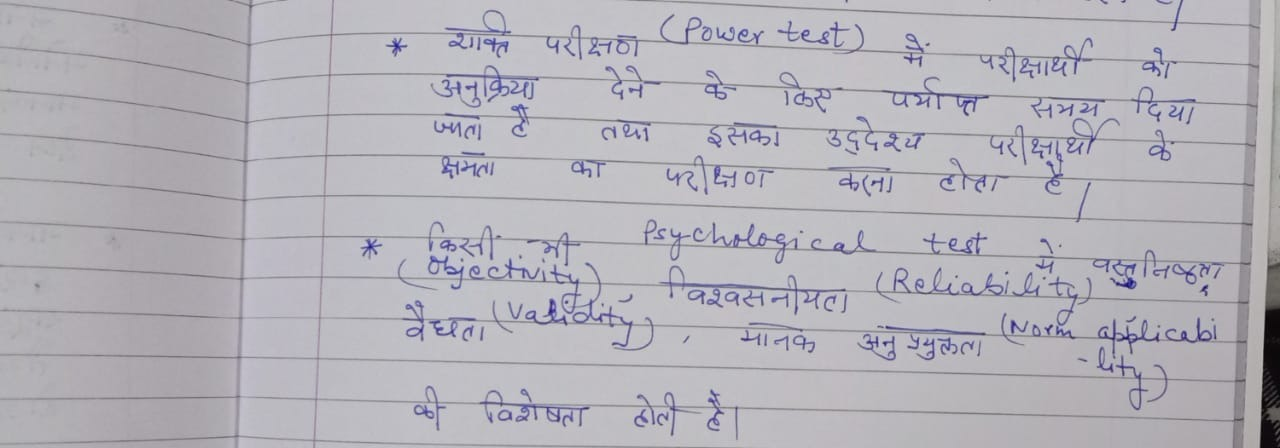 * शक्ति परीक्षण (Power test) में परीक्षार्थी को
अनुक्रिया देने के लिए पर्याप्त समय दिया
जाता है तथा इसका उद्देश्य परीक्षार्थी के
क्षमता का परीक्षण करना होता है।
* किसी भी Psychological test में वस्तुनिष्ठता,
(Objectivity), विश्वसनीयता (Reliability)
वैधता (Validity), मानक अनुप्रयुक्तता (Norm applicabi
-lity)
की विशेषता होती है।